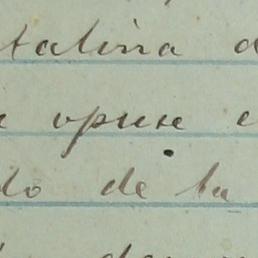 talina d
e opuse e
do de la